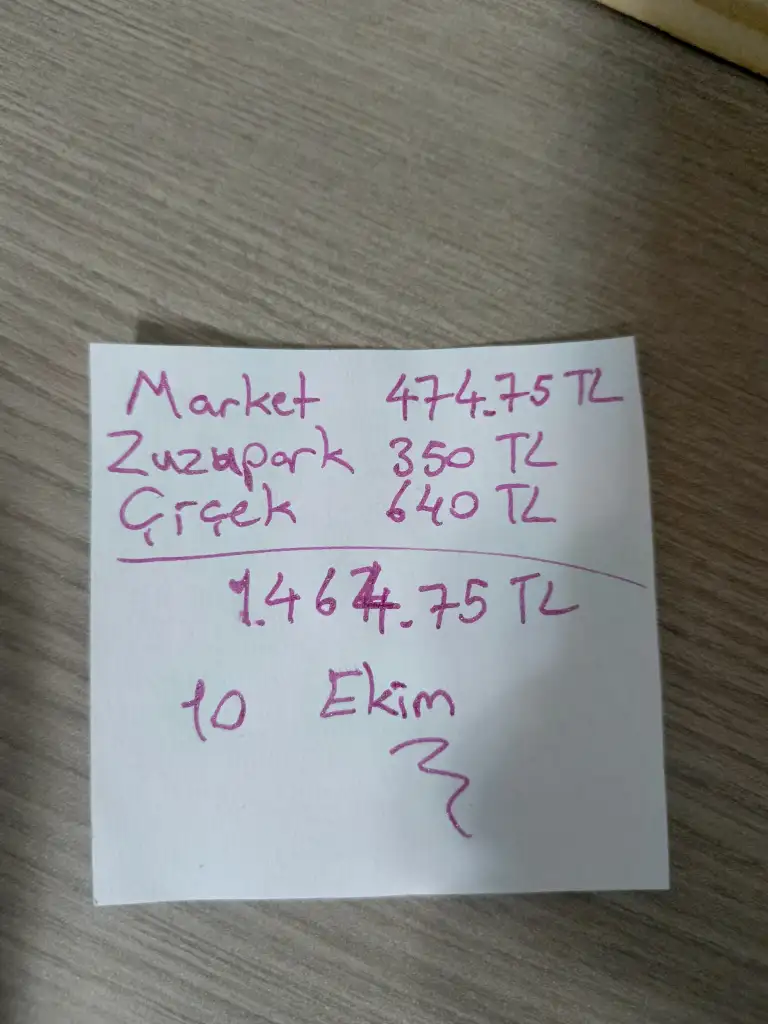 Market 474.75 TL
Zuzupark 350 TL
Çiçek 640 TL
1.464.75 TL
10 Ekim